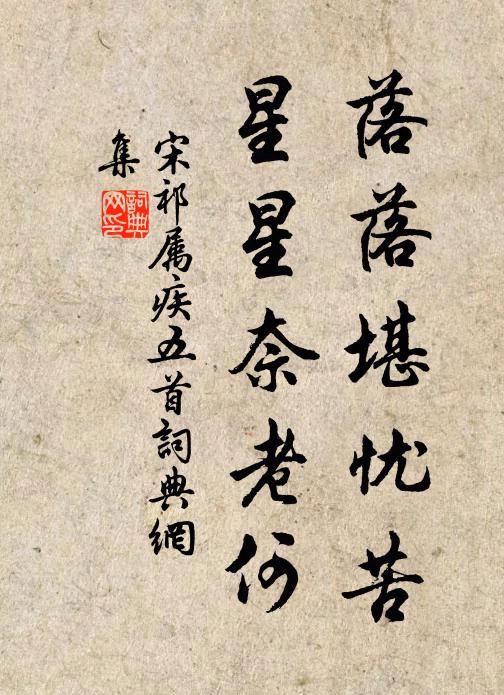 落落堪忧苦
星星奈老何
宋祁属疾五首詞典網
集
詞典
网印